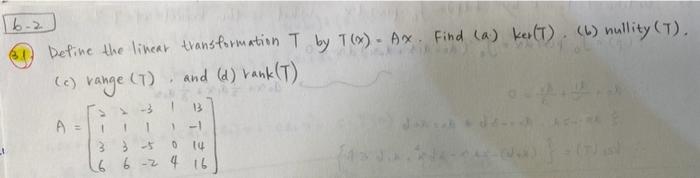 6-2
31. Define the linear transformation T by T(x) = Ax. Find (a) ker(T). (b) nullity (T).
(c) range (T), and (d) rank(T)
A = [ 2 2 -3 1 13
1 1 1 1 -1
3 3 -5 0 14
6 6 -2 4 16 ]